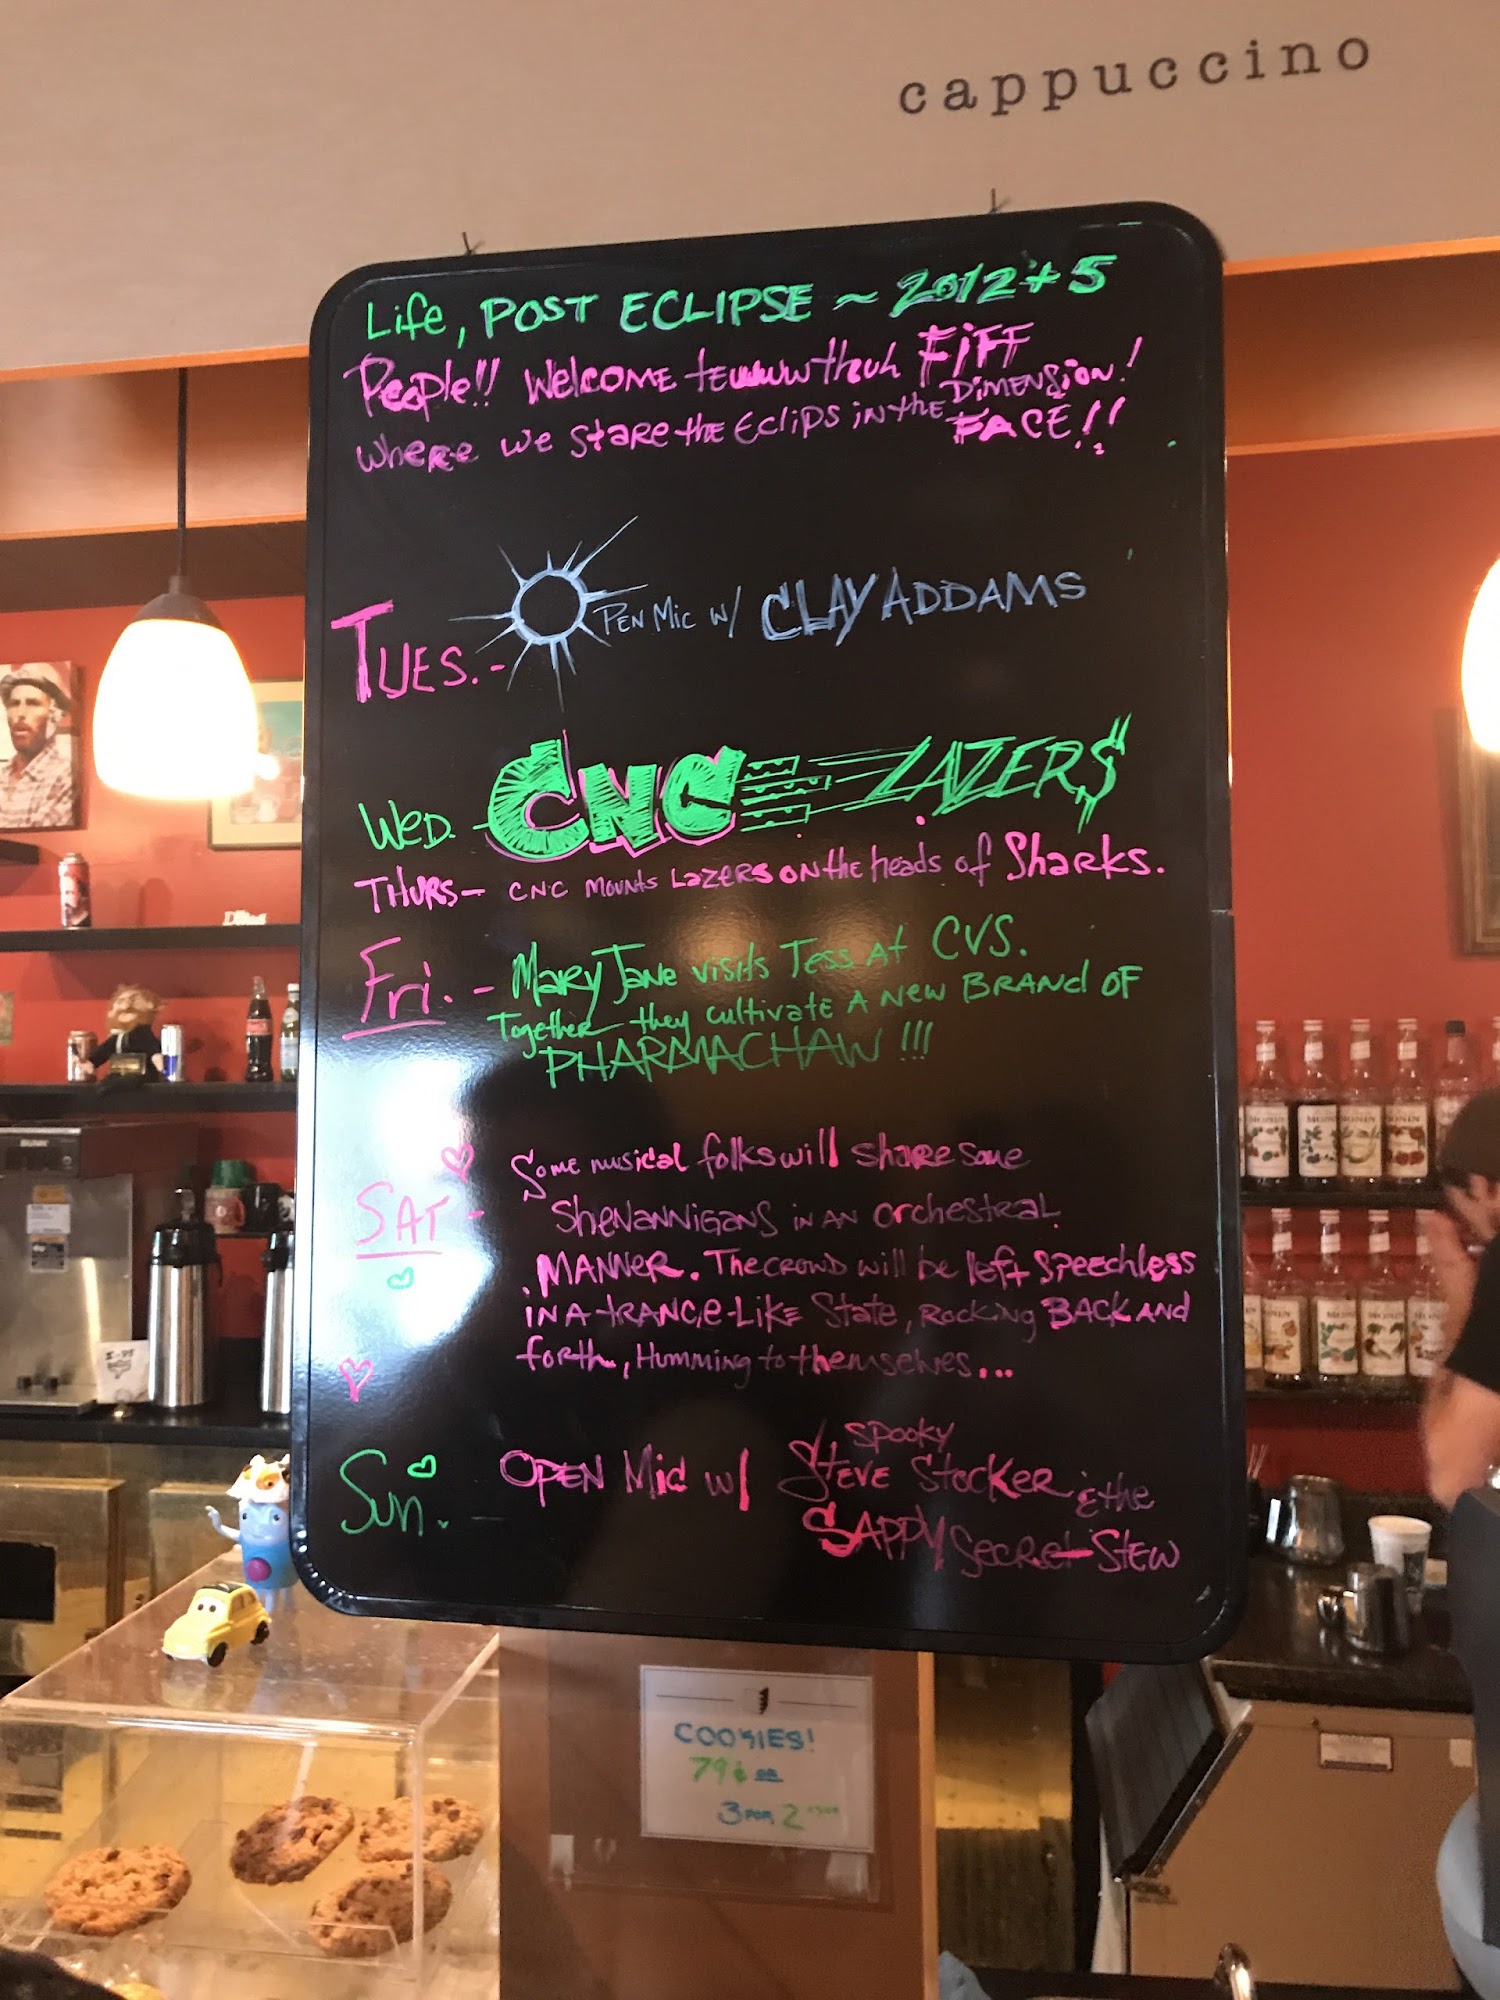 cappuccino
Life, POST ECLIPSE ~ 2012 + 5
People!! Welcome tewwwthuh FIFF
DIMENSION!
where we stare the Eclips in the FACE!!
TUES. - OPEN MIC W/ CLAY ADDAMS
WED. - CNC LAZER$
THURS - CNC MOUNTS LAZERS ON the heads of Sharks.
Fri. - MARY JANE visits Tess At CVS.
Together they cultivate A NEW BRANd OF
PHARMACHAW!!!
SAT - Some musical folks will share some
SHENANNIGANS IN AN Orchestral
MANNER. The CROWD will be left speechless
IN A-tRANCE-LIKE State, Rocking BACK AND
forth, Humming to themselves...
Sun. - OPEN Mic w/ SPOOKY
STEVE StOCKER & the
SAPPY Secret STEW
COOKIES!
79¢ OR
3 FOR 2
BUNN
MONIN
MONIN
MONIN
MONIN